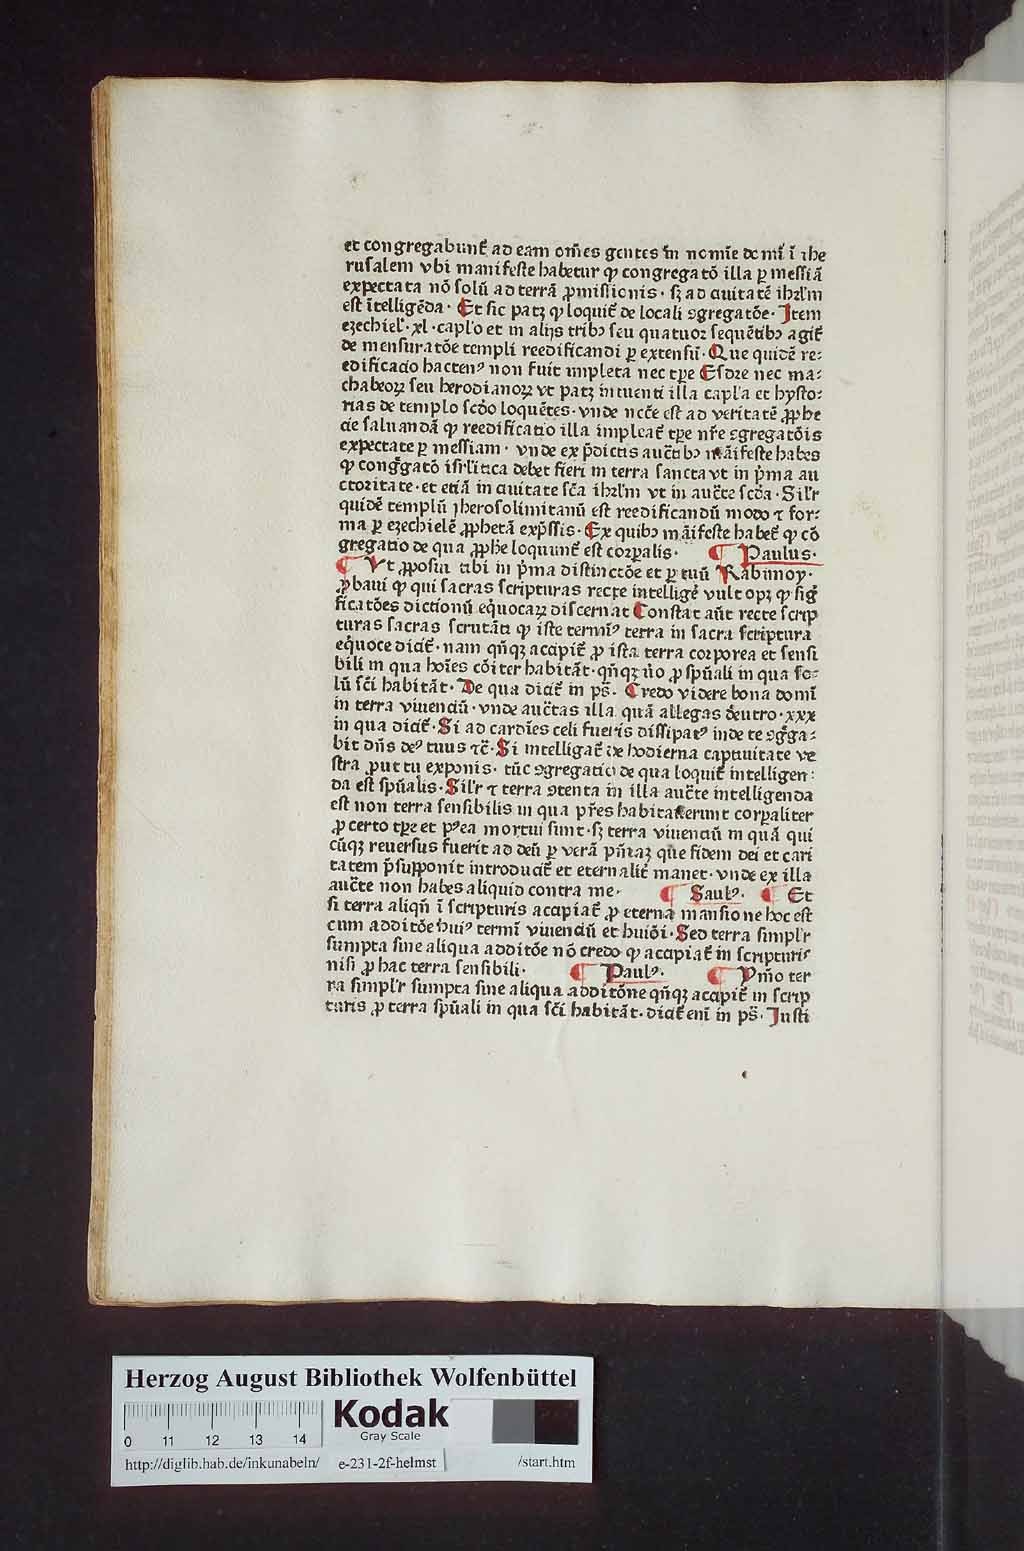 et congregabunt᷑ ad eam om̄es gentes in nomīe domī ī ihe
rusalem vbi manifeste habetur ꝙ congregatō illa ꝑ messiā
expectata nō solū ad terrā ꝓmissionis · sꝫ ad ciuitatē ihrl̄m
est ītelligēda · Et sic patꝫ ꝙ loquit᷑ de locali ꝯgregatōe · Item
ezechiel᷑ · xl · capl'o et in alijs tribꝰ seu quatuor sequētibꝰ agit᷑
de mensuratōe templi reedificandi ꝑ extensū · Que quidē re⸗
edificacio hactenꝰ non fuit impleta nec tꝑe Esdre nec ma⸗
chabeoꝝ seu herodianoꝝ vt patꝫ intuenti illa capl'a et hysto⸗
rias de templo scd̄o loquētes · vnde ncc̄e est ad veritatē ꝓphe
cie saluandā ꝙ reedificatio illa impleat᷑ tꝑe nr̄e ꝯgregatōis
expectate ꝑ messiam · vnde ex p̄dictis auct̄ibꝰ māifeste habes
ꝙ cong̊gatō isrl'itica debet fieri in terra sancta vt in p̄ma au
ctoritate · et etiā in ciuitate sc̄a ihrl̄m vt in auct̄e scd̄a · Sil'r
quidē templū jherosolimitanū est reedificandū modo ⁊ for⸗
ma ꝑ ezechielē ꝓphetā exp̄ssis · Ex quibꝰ māifeste habet᷑ ꝙ cō
gregatio de qua ꝓphe loquunt᷑ est corꝑalis · ¶ Paulus ·
¶ Vt ꝓposui tibi in p̄ma distinctōe et ꝑ tuū Rabimoy ·
ꝓbaui ꝙ qui sacras scripturas recte intellige᷑ vult opꝫ ꝙ sig̅
ficatōes dictionū eq̄uocaꝝ discernat Constat aūt recte scrip
turas sacras scrutāti ꝙ iste termīꝰ terra in sacra scriptura
eq̄uoce dicit᷑ · nam qn̄qꝫ accipit᷑ ꝓ ista terra corporea et sensi
bili in qua hoīes cōiter habitāt · qn̄qꝫ v̄o ꝓ spūali in qua so⸗
lū sc̄i habitāt · De qua dicit᷑ in ps̄ · Credo videre bona domī
in terra viuenciū · vnde auct̄as illa quā allegas deutro · xxx
in qua dicit᷑ · Si ad cardīes celi fueris dissipatꝰ inde te ꝯg̊ga⸗
bit dn̄s deꝰ tuus ⁊c̄ · Si intelligat᷑ de hodierna captiuitate ve
stra ꝓut tu exponis · tūc ꝯgregatio de qua loquit᷑ intelligen⸗
da est spūalis · Sil'r ⁊ terra ꝯtenta in illa auct̄e intelligenda
est non terra sensibilis in qua pr̄es habitauerunt corꝑaliter
ꝓ certo tꝑe et pꝰea mortui sunt · sꝫ terra viuenciū in quā qui
cūqꝫ reuersus fuerit ad deū ꝑ verā pn̄iaꝫ que fidem dei et cari
tatem p̄supponit introducit᷑ et eternalit᷑ manet · vnde ex illa
auct̄e non habes aliquid contra me · ¶ Saulꝰ · ¶ Et
si terra aliqn̄ ī scripturis accipiat᷑ ꝓ eterna mansione hoc est
cum additōe huiꝰ termī viuenciū et huiōi · Sed terra simpl'r
sumpta sine aliqua additōe nō credo ꝙ accipiat᷑ in scripturis
nisi ꝓ hac terra sensibili · ¶ Paulꝰ · ¶ Ymo ter
ra simpl'r sumpta sine aliqua additōne qn̄qꝫ accipit᷑ in scrip
turis ꝓ terra spūali in qua sc̄i habitāt · dicit᷑ enī in ps̄ · Justi
Herzog August Bibliothek Wolfenbüttel
Kodak
Gray Scale
0 11 12 13 14
http://diglib.hab.de/inkunabeln/ e-231-2f-helmst /start.htm